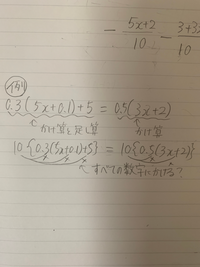 - 5x+2/10 - 3+3x/10
例
0.3(5x+0.1)+5 = 0.5(3x+2)
かけ算と足し算 かけ算
10{0.3(5x+0.1)+5} = 10{0.5(3x+2)}
すべての数字にかける?